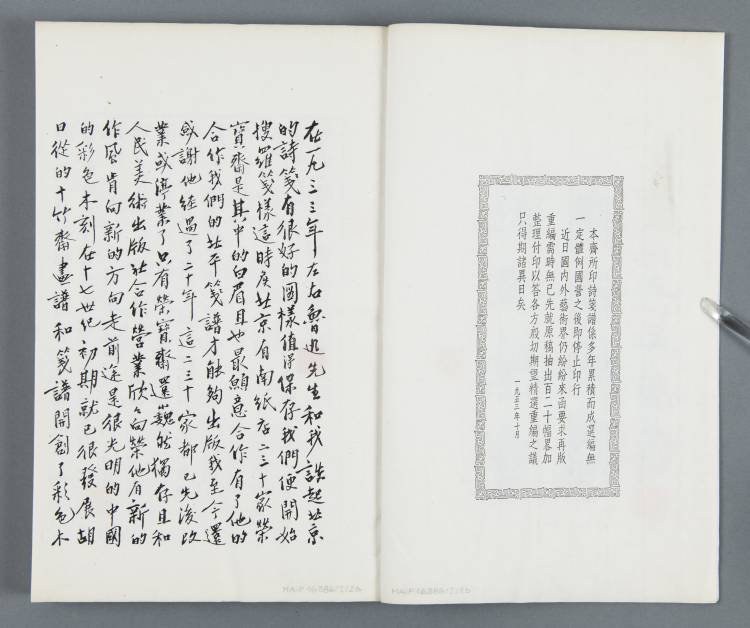 本齋所印詩箋譜係多年累積而成選編無
一定體例國營之後即停止印行
近日國內外藝術界仍紛紛來函要求再版
重編需時無已先就原稿抽出百二十幅畧加
整理付印以答各方殷切期望精選重編之議
只得期諸異日矣
一九五三年十月
在一九三三年左右魯迅先生和我談起北京
的詩箋有很好的圖樣值得保存我們便開始
搜羅箋樣這時候北京有南紙店二三十家榮
寶齋是其中的白眉且也最願意合作有了他的
合作我們的北平箋譜才能夠出版我至今還
感謝他經過了二十年這二三十家都已先後改
業或停業了只有榮寶齋還巍然獨存且和
人民美術出版社合作營業欣々向榮他有新的
作風肯向新的方向走前途是很光明的中國
的彩色木刻在十七世紀初期就已很發展胡
曰從的十竹齋畫譜和箋譜開創了彩色木